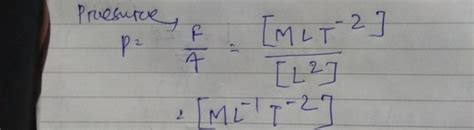 Pruesurce
P = F/A = [MLT⁻²]/[L²]
= [ML⁻¹T⁻²]